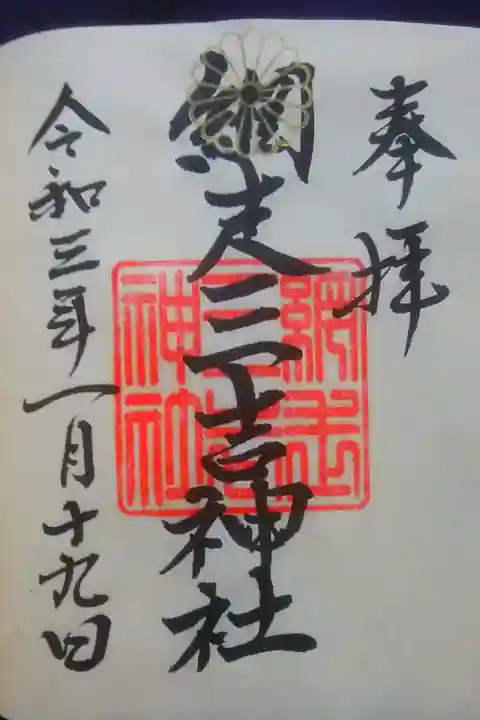 奉拝
網走三吉神社
令和三年一月十九日
網走三吉神社